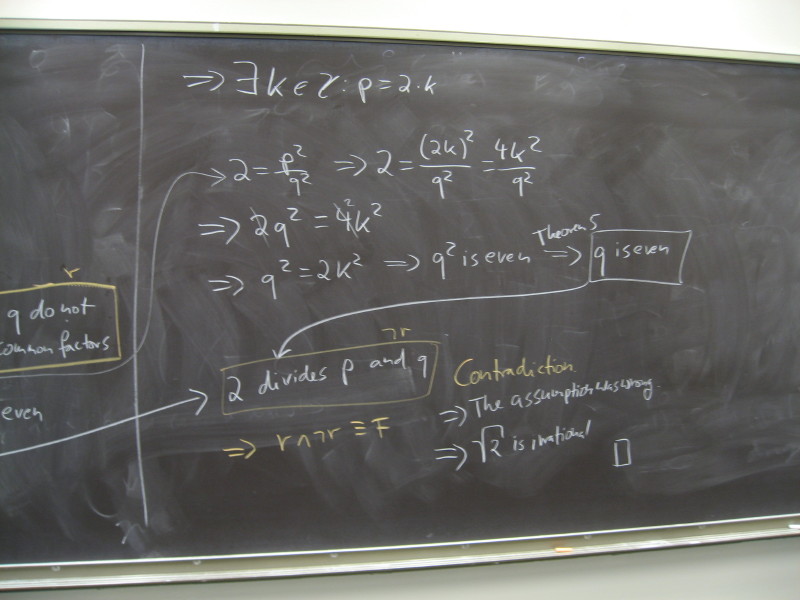 ⇒ ∃k∈ℤ: p=2·k
2 = p²/q² ⇒ 2 = (2k)²/q² = 4k²/q²
⇒ 2q² = 4²k²
⇒ q² = 2k² ⇒ q² is even Theorem 5 ⇒ q is even
r
q do not
common factors
even
¬r
2 divides p and q
⇒ r∧¬r ≡ F
Contradiction.
⇒ The assumption was wrong.
⇒ √2 is irrational
□